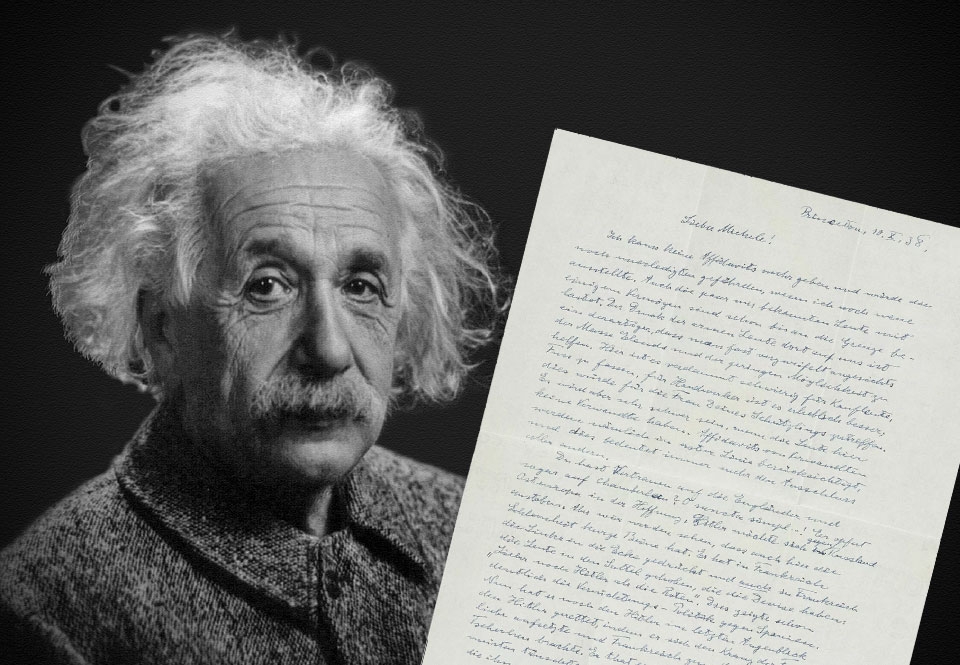 Princeton, 10.X.38.
Lieber Michele!
Ich kann keine Affidavits mehr geben und würde die
noch unerledigten gefährden, wenn ich noch neue
ausstellte. Auch die paar mir bekannten Leute mit
einigem Vermögen sind schon bis an die Grenze be-
lastet. Der Druck der armen Leute dort auf uns ist
ein derartiger, dass man fast verzweifelt angesichts
der Masse Elends und der geringen Möglichkeit zu
helfen. Hier ist es verdammt schwierig für Kaufleute,
Fuss zu fassen, für Handwerker ist es erheblich besser,
dies würde für die Frau Deines Schützlings zutreffen.
Es wird aber sehr schwer sein, wenn die Leute hier
keine Verwandte haben. Affidavits von Verwandten
werden nämlich in erster Linie berücksichtigt,
und dies bedeutet immer mehr den Ausschluss
aller andern.
Du hast Vertrauen auf die Engländer und
sogar auf Chamberlain? O sancta simpl...! Er opfert
Osteuropa in der Hoffnung, Hitler möchte sich gegen Russland
austoben. Aber wir werden sehen, dass auch hier die
Schlauheit kurze Beine hat. Er hat in Frankreich
die Linke in die Ecke gedrückt und auch in Frankreich
die Leute in den Sattel gehoben, die die Devise haben:
"Lieber noch Hitler als die Roten". Dies zeigte schon
deutlich die Vernichtungs-Politik gegen Spanien.
Nun hat er noch den Hitler im letzten Augenblick
den Hitler gerettet, indem er sich den Kranz der
liebe aufsetzte und Frankreich
Tschechen brachte. Er that